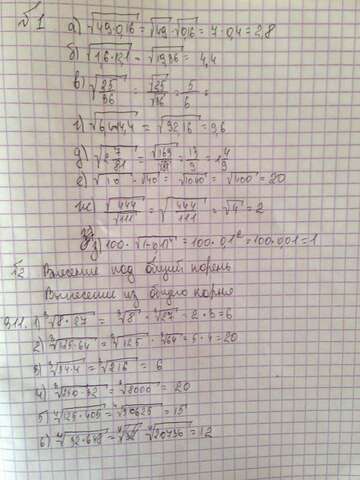 №1 а) √49·0,16 = √49 · √0,16 = 7 · 0,4 = 2,8
б) √1,6·12,1 = √19,36 = 4,4
в) √25/36 = √25/√36 = 5/6 =
г) √6,4·14,4 = √92,16 = 9,6
д) √2 7/81 = √169/√81 = 13/9 = 1 4/9
е) √10 · √40 = √10·40 = √400 = 20
ж) √444/√111 = √444/111 = √4 = 2
з) 100 · = 100 · 0,1² = 100 · 0,01 = 1
№2 Внесение под общий корень
Вынесение из общего корня
9.11. 1) ³√8·27 = ³√8 · ³√27 = 2 · 3 = 6
2) ³√125·64 = ³√125 · ³√64 = 5 · 4 = 20
3) ³√54·4 = ³√216 = 6
4) ³√250·32 = ³√8000 = 20
5) ⁴√125·405 = ⁴√50625 = 15
6) = 12